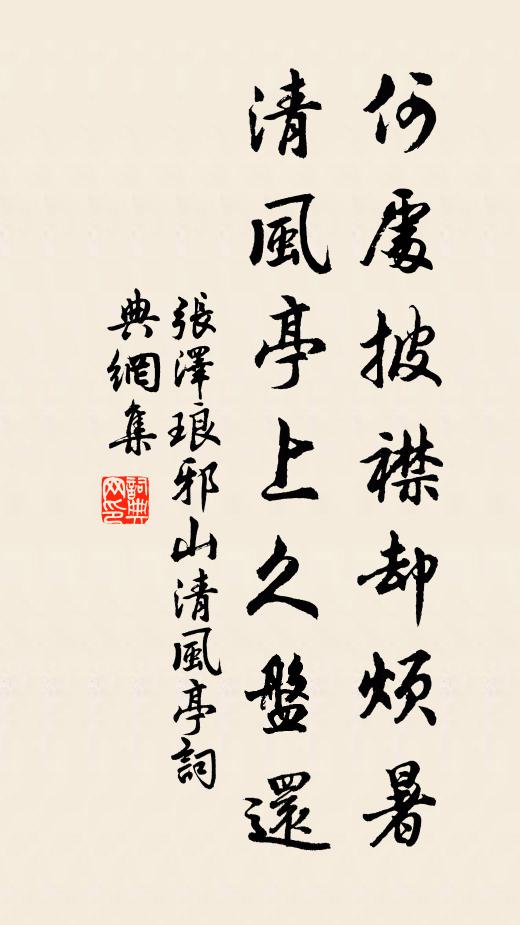 何處披襟却煩暑
清風亭上久盤還
張澤琅邪山清風亭詞
典網集
詞典網印